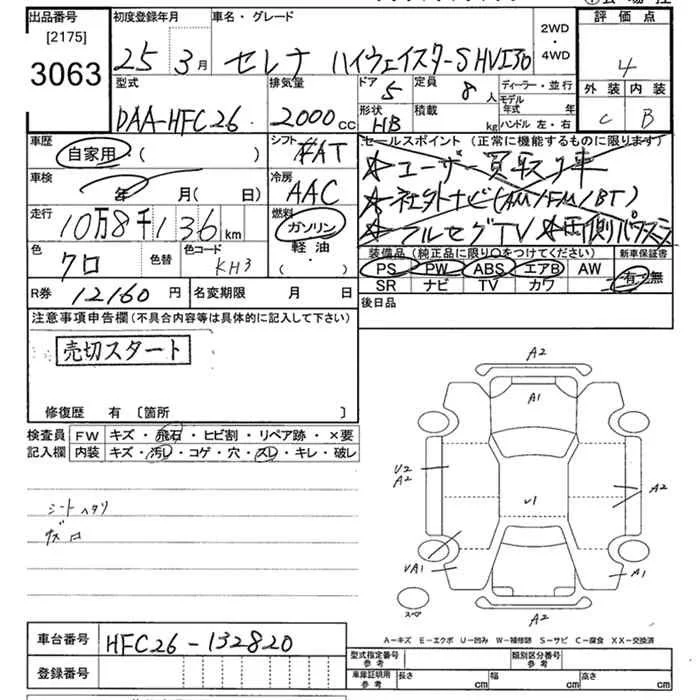 出品番号 初度登録年月 車名・グレード 2WD ・ 4WD 評価点
[2175]
3063 25 3月 セレナ ハイウェイスターSHV 4
型式 排気量 ドア 5 定員 8人 ディーラー・並行 外装 内装
DAA-HFC26 2000cc 形状 HB 積載 kg モデル年式 年 ハンドル 左・右 C B
車歴 自家用・( ) シフト FAT セールスポイント(正常に機能するものに限ります)
☆ユーザー買取り車
車検 年 月( 日) 冷房 AAC ☆社外ナビ(AM/FM/BT)
走行 10万8千136km 燃料 ガソリン 軽油 ・ ( ) ☆フルセグTV ☆両側パワスラ
色 クロ 色替 色コード KH3 装備品(純正品に限り○をつけてください) 新車保証書
PS PW ABS エアB AW 有・無
R券 12160円 名変期限 月 日 SR ナビ TV カワ
注意事項申告欄(不具合内容等は具体的に記入して下さい) 後日品
売切スタート
修復歴 有 〔箇所 〕
検査員 FW キズ・飛石・ヒビ割・リペア跡・×要
記入欄 内装 キズ・汚レ・コゲ・穴・スレ・キレ・破レ
A2
A1
U2
A2
U1
A2
シートヘタリ
UA1
A1
スペア
A2
A-キズ E-エクボ U-凹み W-補修跡 S-サビ C-腐食 XX-交換済
車台番号 HFC26-132820
登録番号
型式指定番号 参考 類別区分番号 参考
車庫証明用 参考 長さ cm 幅 cm 高さ cm